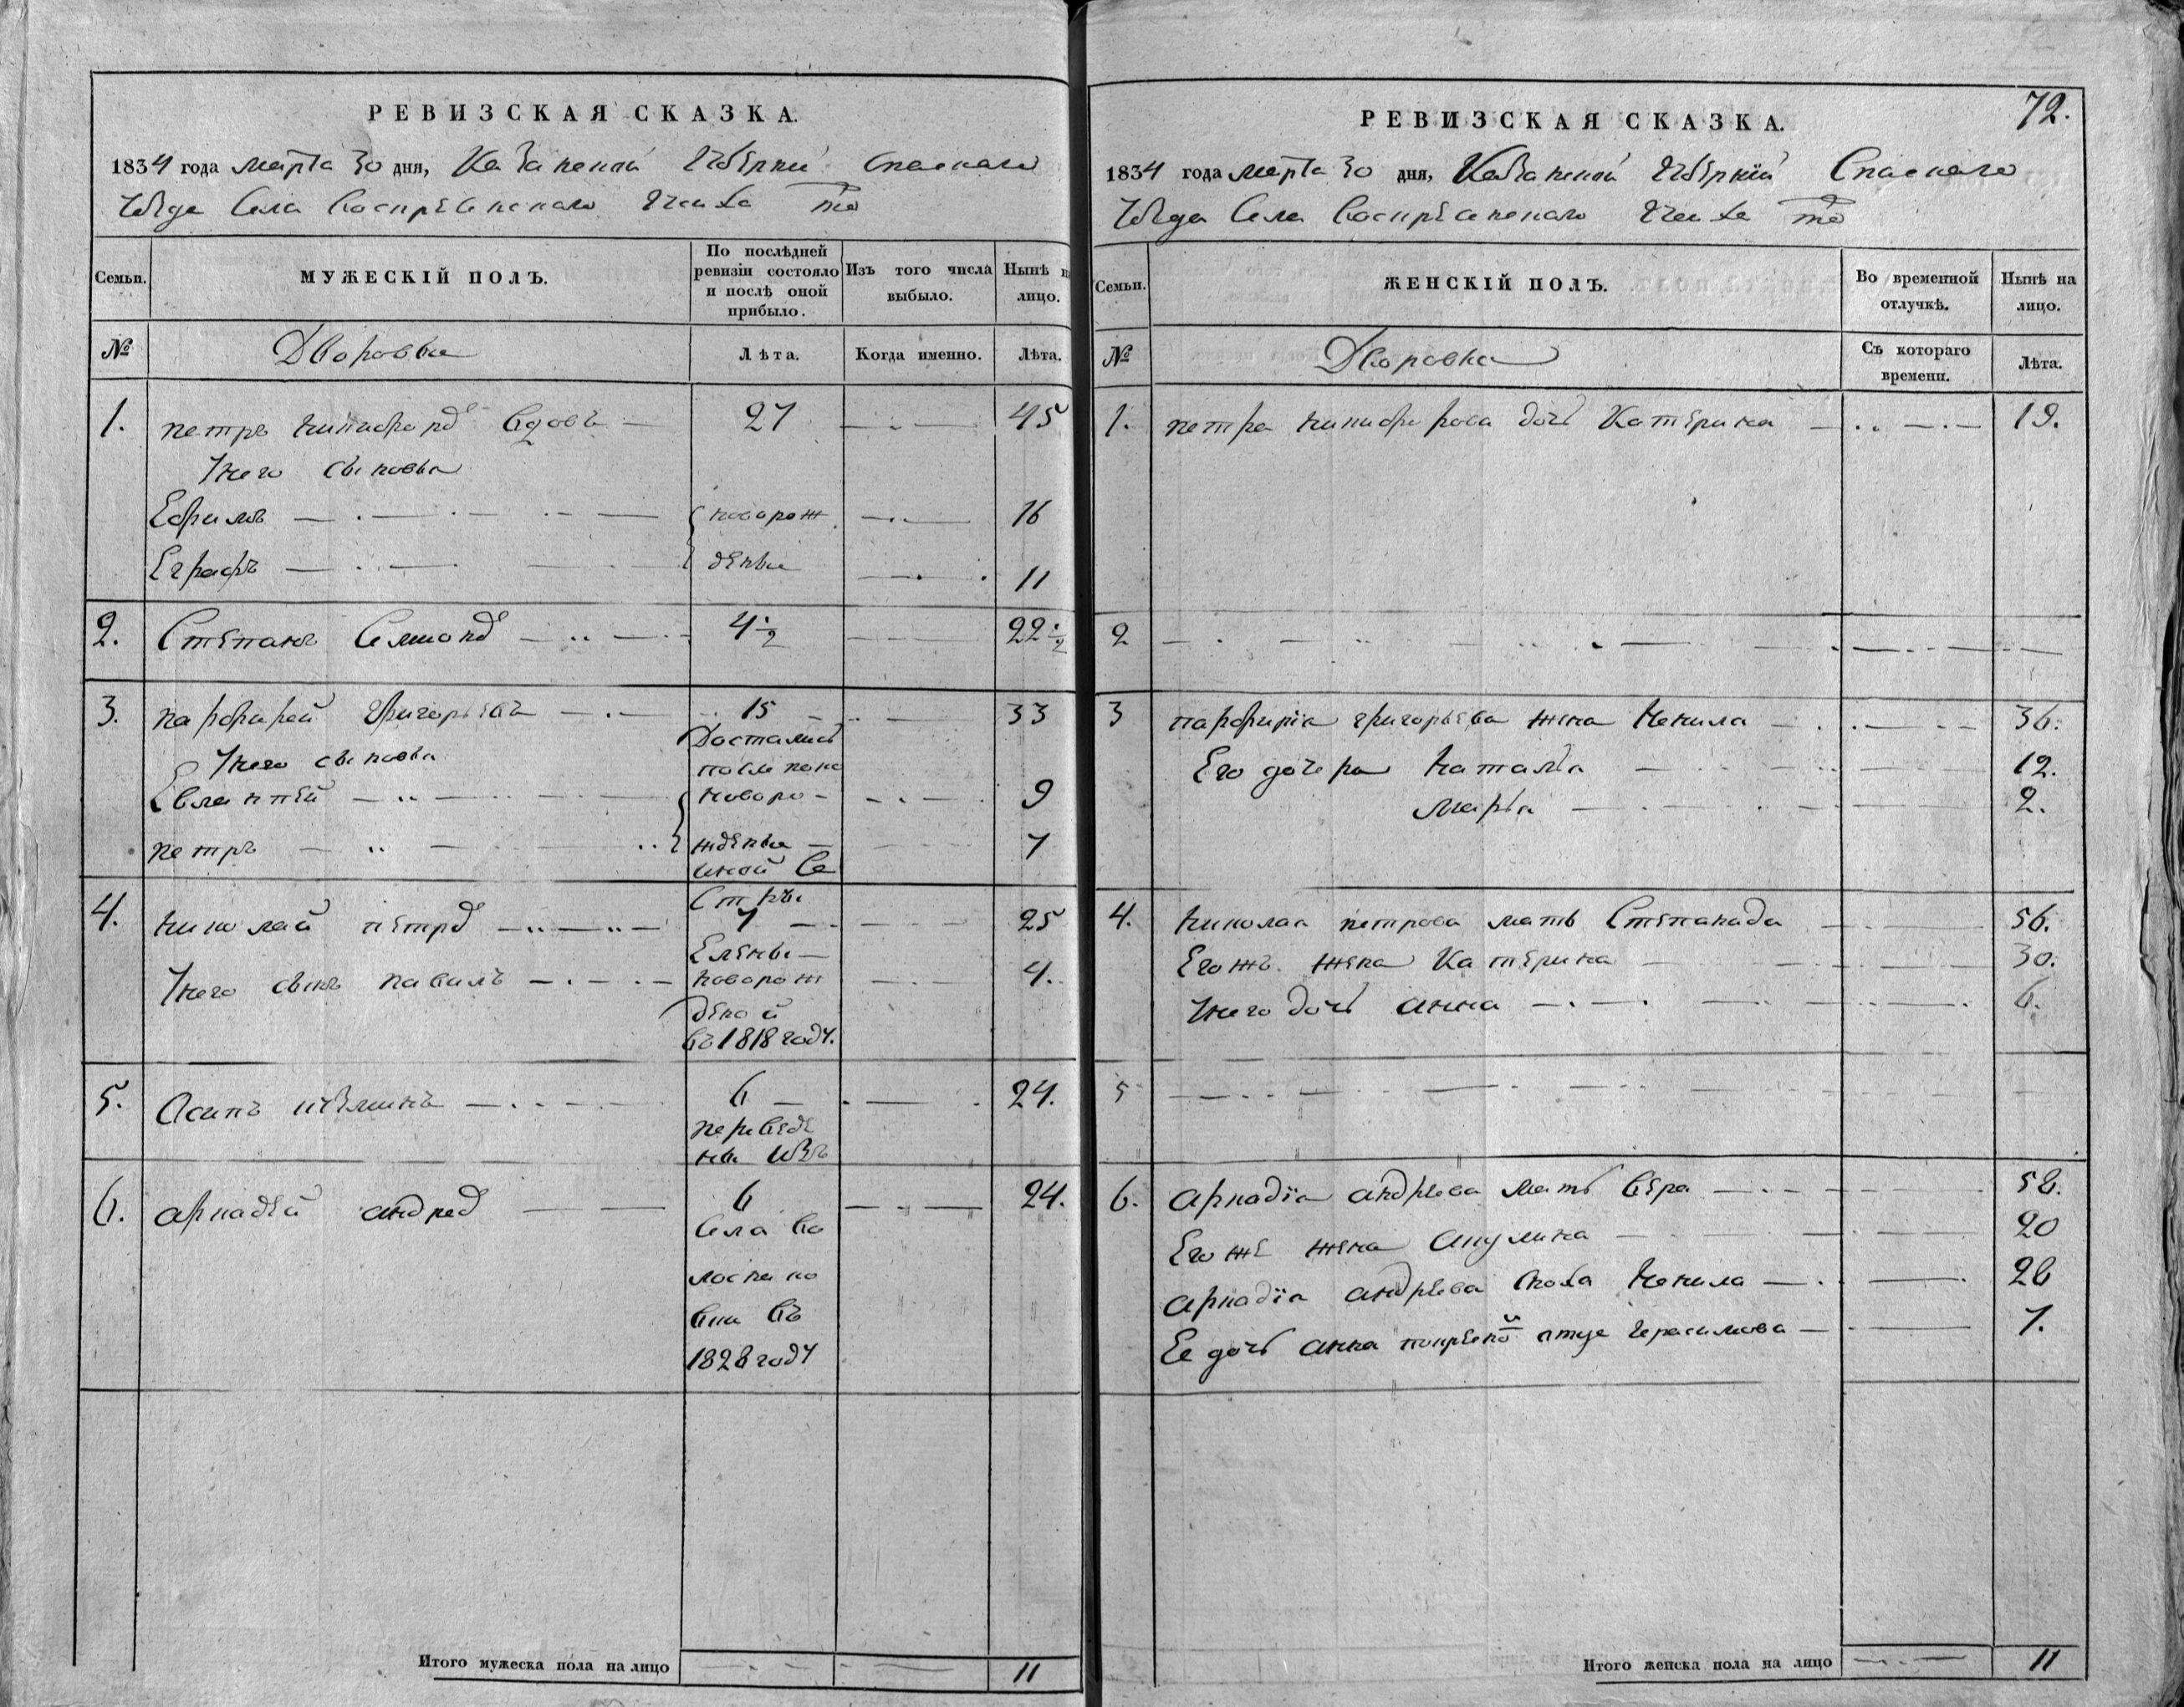 РЕВИЗСКАЯ СКАЗКА.
1834 года марта 30 дня, Казанской Губернии Спаскаго
Уезда Села Воскресенскаго Учиха то
Семьи.
МУЖЕСКІЙ ПОЛЪ.
По послѣдней ревизіи состояло и послѣ оной прибыло.
Изъ того числа выбыло.
Нынѣ на лицо.
№
Дворовыя
Лѣта.
Когда именно.
Лѣта.
1. петръ никифоро въ вдовъ — 27 45
У него сыновья
Ефимъ новорож 16
Еграфъ денныя 11
2. Степанъ Семионо въ 4 1/2 22 1/2
3. парфирей григорьевъ 15 33
Достались
У него сыновья
после поко
Евлантей новоро- 9
петръ жденныя 7
иной Се
4. николай петро въ Стры 7 25
Елены
У него сынъ павилъ новорож 4.
деной
въ 1818 году.
5. Осипъ 6 24.
переведе
ны изъ
6. аркадей андре въ 6 24.
Села Во
лоско
въ
1828 году
Итого мужеска пола на лицо 11
РЕВИЗСКАЯ СКАЗКА.
72.
1834 года марта 30 дня, Казанской Губерній Спаскаго
Уезда Села Воскресенскаго то
Семьи.
ЖЕНСКІЙ ПОЛЪ.
Во временной отлучкѣ.
Нынѣ на лицо.
№
Дворовыя
Съ котораго времени.
Лѣта.
1. петра никифорова дочь Катерина 19.
2
3 парфирія григорьева жена Ненила 36.
Его дочери Наталья 12.
Марья 2.
4. николая петрова мать Степанида 56.
Его жъ жена Катерина 30.
У него дочь анна 6.
5
6. аркадія андреева мать Вера 58.
Его же жена Акулина 20
аркадія андреева сноха Ненила 28
Ее дочь анна отце Герасимова 7.
Итого женска пола на лицо 11